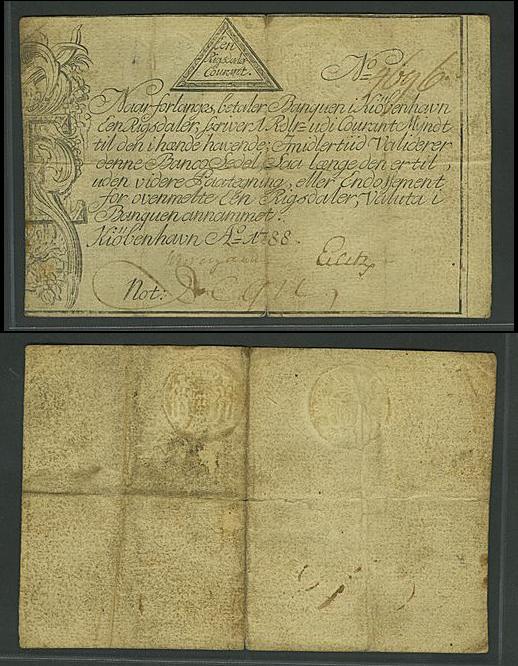 Een
Rigsdaler
Courant.
No
Naar forlanges, betaler Banquen i Kiöbenhavn
Een Rigsdaler, skriver 1 Rdlr= udi Courant Mÿndt
til den i hænde havende; Imidlertiid Validerer
denne Banco-Sedel saa længe den er til,
uden videre Paategning, eller Endossement
for ovenmelte Een Rigsdaler, Valuta i
Banquen annammet.
Kiöbenhavn Ao. 1788.
Not: